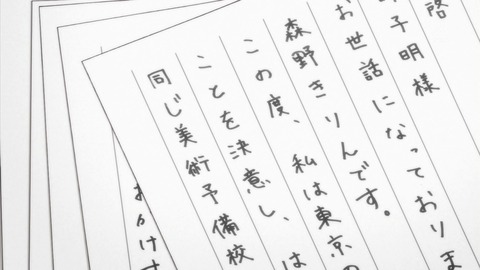 啓
子明様
お世話になっておりま
森野きりんです。
この度、私は東京の
ことを決意し、は
同じ美術予備校
おかけ